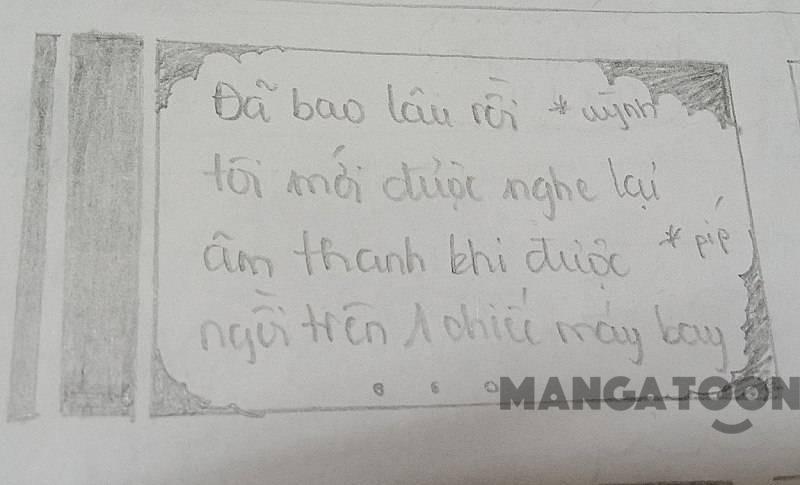 Đã bao lâu rồi *uỳnh
tôi mới được nghe lại
âm thanh khi được *píp
ngồi trên 1 chiếc máy bay
MANGATOON